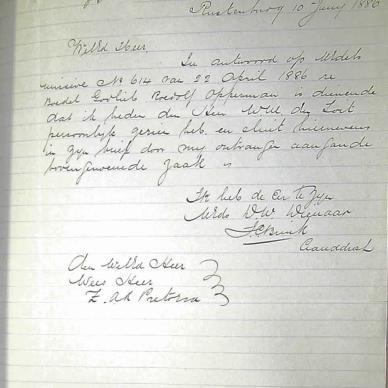 Rustenburg 10 Juny 1886
WelEd Heer
In antwoord op UEdels
missive No 614 van 22 April 1886 re
Boedel Gotlieb Rodolf Opperman is dienende
dat ik heden den Heer W. der Zoit
persoonlyk gezien heb en sluit hiernevens
in zyn brief door my ontvangen aangaande
bovengenoemde zaak is
Ik heb de Eer te zyn
UEds D.W. Dienaar
Den WelEd Heer
Wees Heer
Z. A. R. Pretoria